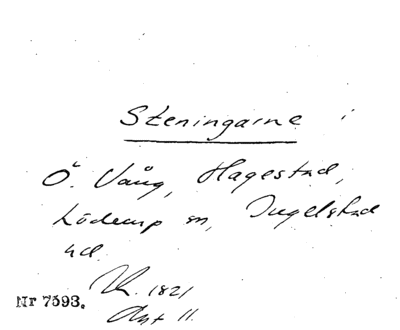 Steningarne i
Ö. Vång, Hagestad,
Löderup sn, Ingelstad
hd.
Lk. 1821
Akt 11.
Nr 7593.